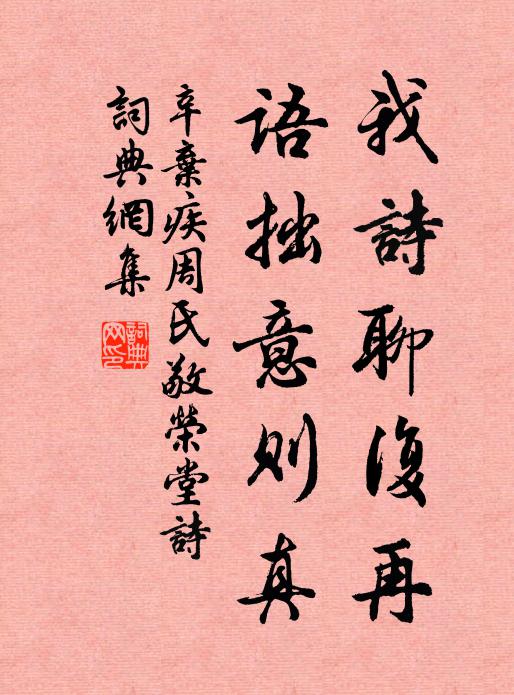 我詩聊復再
語拙意則真
辛棄疾周氏敬榮堂詩
詞典網集
詞典網印